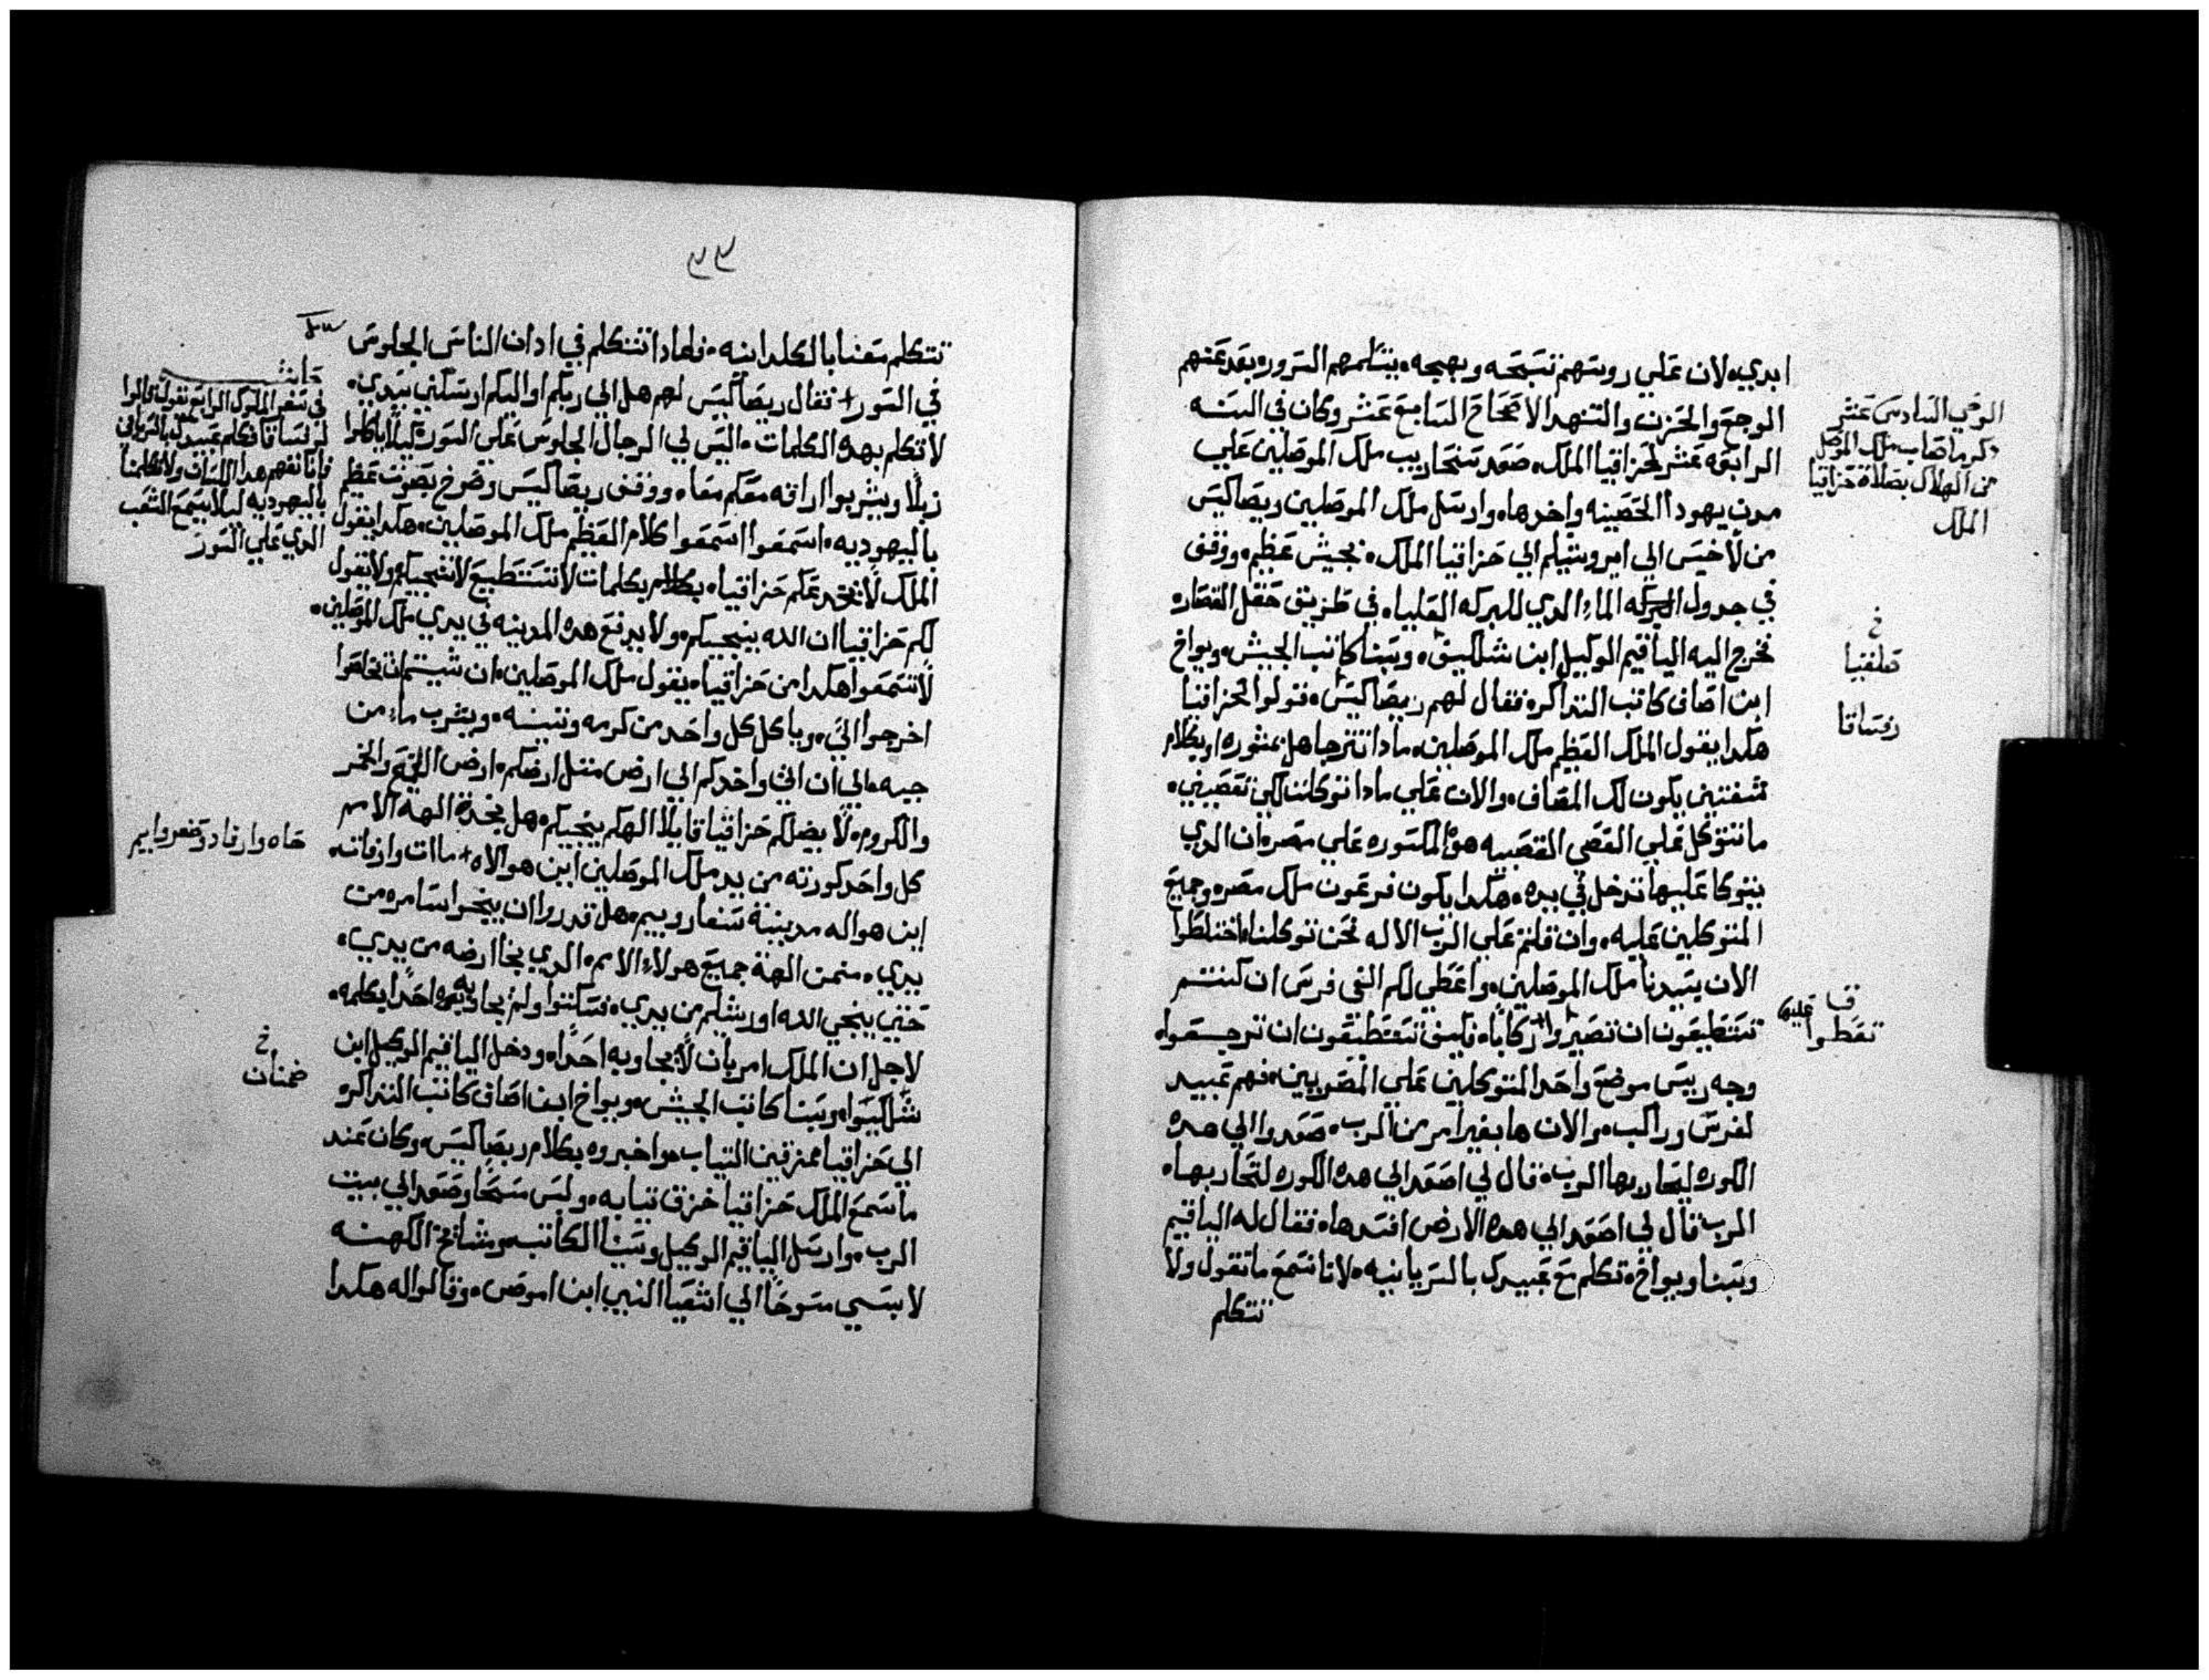 ابدي، لان علي روسهم تسبحه وبهجه، يتسلمهم السرور، بعد عنهم
الوجع والحزن والتنهد الاصحاح السابع عشر وكان في السنه
الرابعه عشر لحزاقيا الملك، صعد سنحاريب ملك الموصلين علي
مدن يهودا الحصينه واخدها، وارسل ملك الموصلين ربصاكيس
من لاخيس الي ايروشليم الي حزاقيا الملك، بجيش عظيم، ووقف
في جدول البركه الماء الدي للبركه العليا، في طريق حقل القصار،
فخرج اليه الياقيم الوكيل ابن شلكيق، وسبنا كاتب الجيش، ويواخ
ابن اصاف كاتب التداكر، فقال لهم ربصاكيس، قولوا لحزاقيا
هكدا يقول الملك العظيم ملك الموصلين، مادا تترجا هل بمشوره او بكلام
شفتين يكون لك المصاف، والان علي مادا توكلت لكي تعصيني،
ما تتوكل علي العصي القصبيه هوالمكسوره علي مصر، ان الدي
يتوكا عليها تدخل في يده، هكدا يكون فرعون ملك مصر، وجميع
المتوكلين عليه، وان قلتم علي الرب الاله نحن توكلنا، اختلطوا
الان بسيدنا ملك الموصلين، واعطي لكم الفي فرس ان كنتم
تستطيعون ان تصيروا ركابا، فكيف تستطيعون ان ترجعوا،
وجه ريس موضع واحد المتوكلين علي المصريين، فهم عبيد
لفرس وراكب، والان ها بغير امر من الرب، صعدوا الي هده
الكوره ليحاربها الرب، قال لي اصعد الي هده الكوره لتحاربها،
الرب قال لي اصعد الي هده الارض افسدها، فقال له الياقيم
وسبنا ويواخ، تكلم مع عبيدك بالسريانيه، لانا نسمع ما تقول ولا
تتكلم
الوحي السادس عشر
دكر ما صاب ملك الموصل
من الهلاك بصلاة حزاقيا
الملك
خ
رفساقا
تعطوا عليها
تتكلم معنا بالكلدانيه، فلمادا تتكلم في ادان الناس الجلوس
في السور+ فقال ربصاكيس لهم هل الي ربكم او اليكم ارسلني سيدي،
لاتكلم بهده الكلمات، اليس لي الرجال الجلوس علي السور، كيلا ياكلوا
زبلا ويشربوا اراقه معكم معا، ووقف ربصاكيس وصرخ بصوت عظيم
باليهوديه، اسمعوا اسمعوا كلام العظيم ملك الموصلين، هكدا يقول
الملك لا يخدعكم حزاقيا، بكلام بكلمات لا تستطيع لا تنجيكم، ولا يقول
لكم حزاقيا ان الله ينجيكم، ولا يدفع هده المدينه في يدي ملك الموصلين،
لا تسمعوا هكدا من حزاقيا، يقول ملك الموصلين، ان شيتم ان تخلصوا
اخرجوا الي، وياكل كل واحد من كرمه وتينه، ويشرب ماء من
جبه، الي ان اتي واخدكم الي ارض متل ارضكم، ارض القمح والخمر
والكروم، لا يضلكم حزاقيا قايلا الهكم ينجيكم، هل نجت الهة الامم
كل واحد كورته من يد ملك الموصلين اين هو الاه+ مات وارفاته
اين هو اله مدينة سفاروييم، هل قدروا ان ينجوا سامره من
يدي، فمن من الهة جميع هولاء الامم، الدي نجا ارضه من يدي،
حتي ينجي الله اورشليم من يدي، فسكتوا ولم يجاوبه احدا بكلمه،
لاجل ان الملك امر بان لا يجاوبه احدا، ودخل الياقيم الوكيل ابن
شلكيوا، وسبنا كاتب الجيش، ويواخ ابن اصاف كاتب التداكر
الي حزاقيا ممزقين التياب، واخبروه بكلام ربصاكيس، وكان عند
ما سمع الملك حزاقيا خزق تيابه، ولبس مسحا وصعد الي بيت
الرب، وارسل الياقيم الوكيل وسبنا الكاتب، ومشايخ الكهنه
لابسي مسوحا الي اشعيا النبي ابن اموص، وقالوا له هكدا
حاشيه
في سفر الملوك الرابع يقول قالوا
لرفساقا فكلم عبيدك بالسرياني
فانا نفهم هدا اللسان ولا تكلمنا
باليهوديه ليلا يسمع الشعب
الدي علي السور
حماه وارفاد وسفروايم
خ